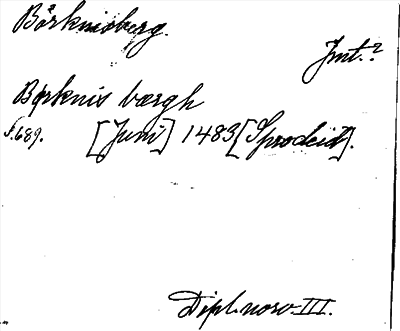 Börknisberg.
Jmt.?
Børknis bærgh
s. 689. [Juni] 1483 [Sprodeid].
Dipl. norv. III.